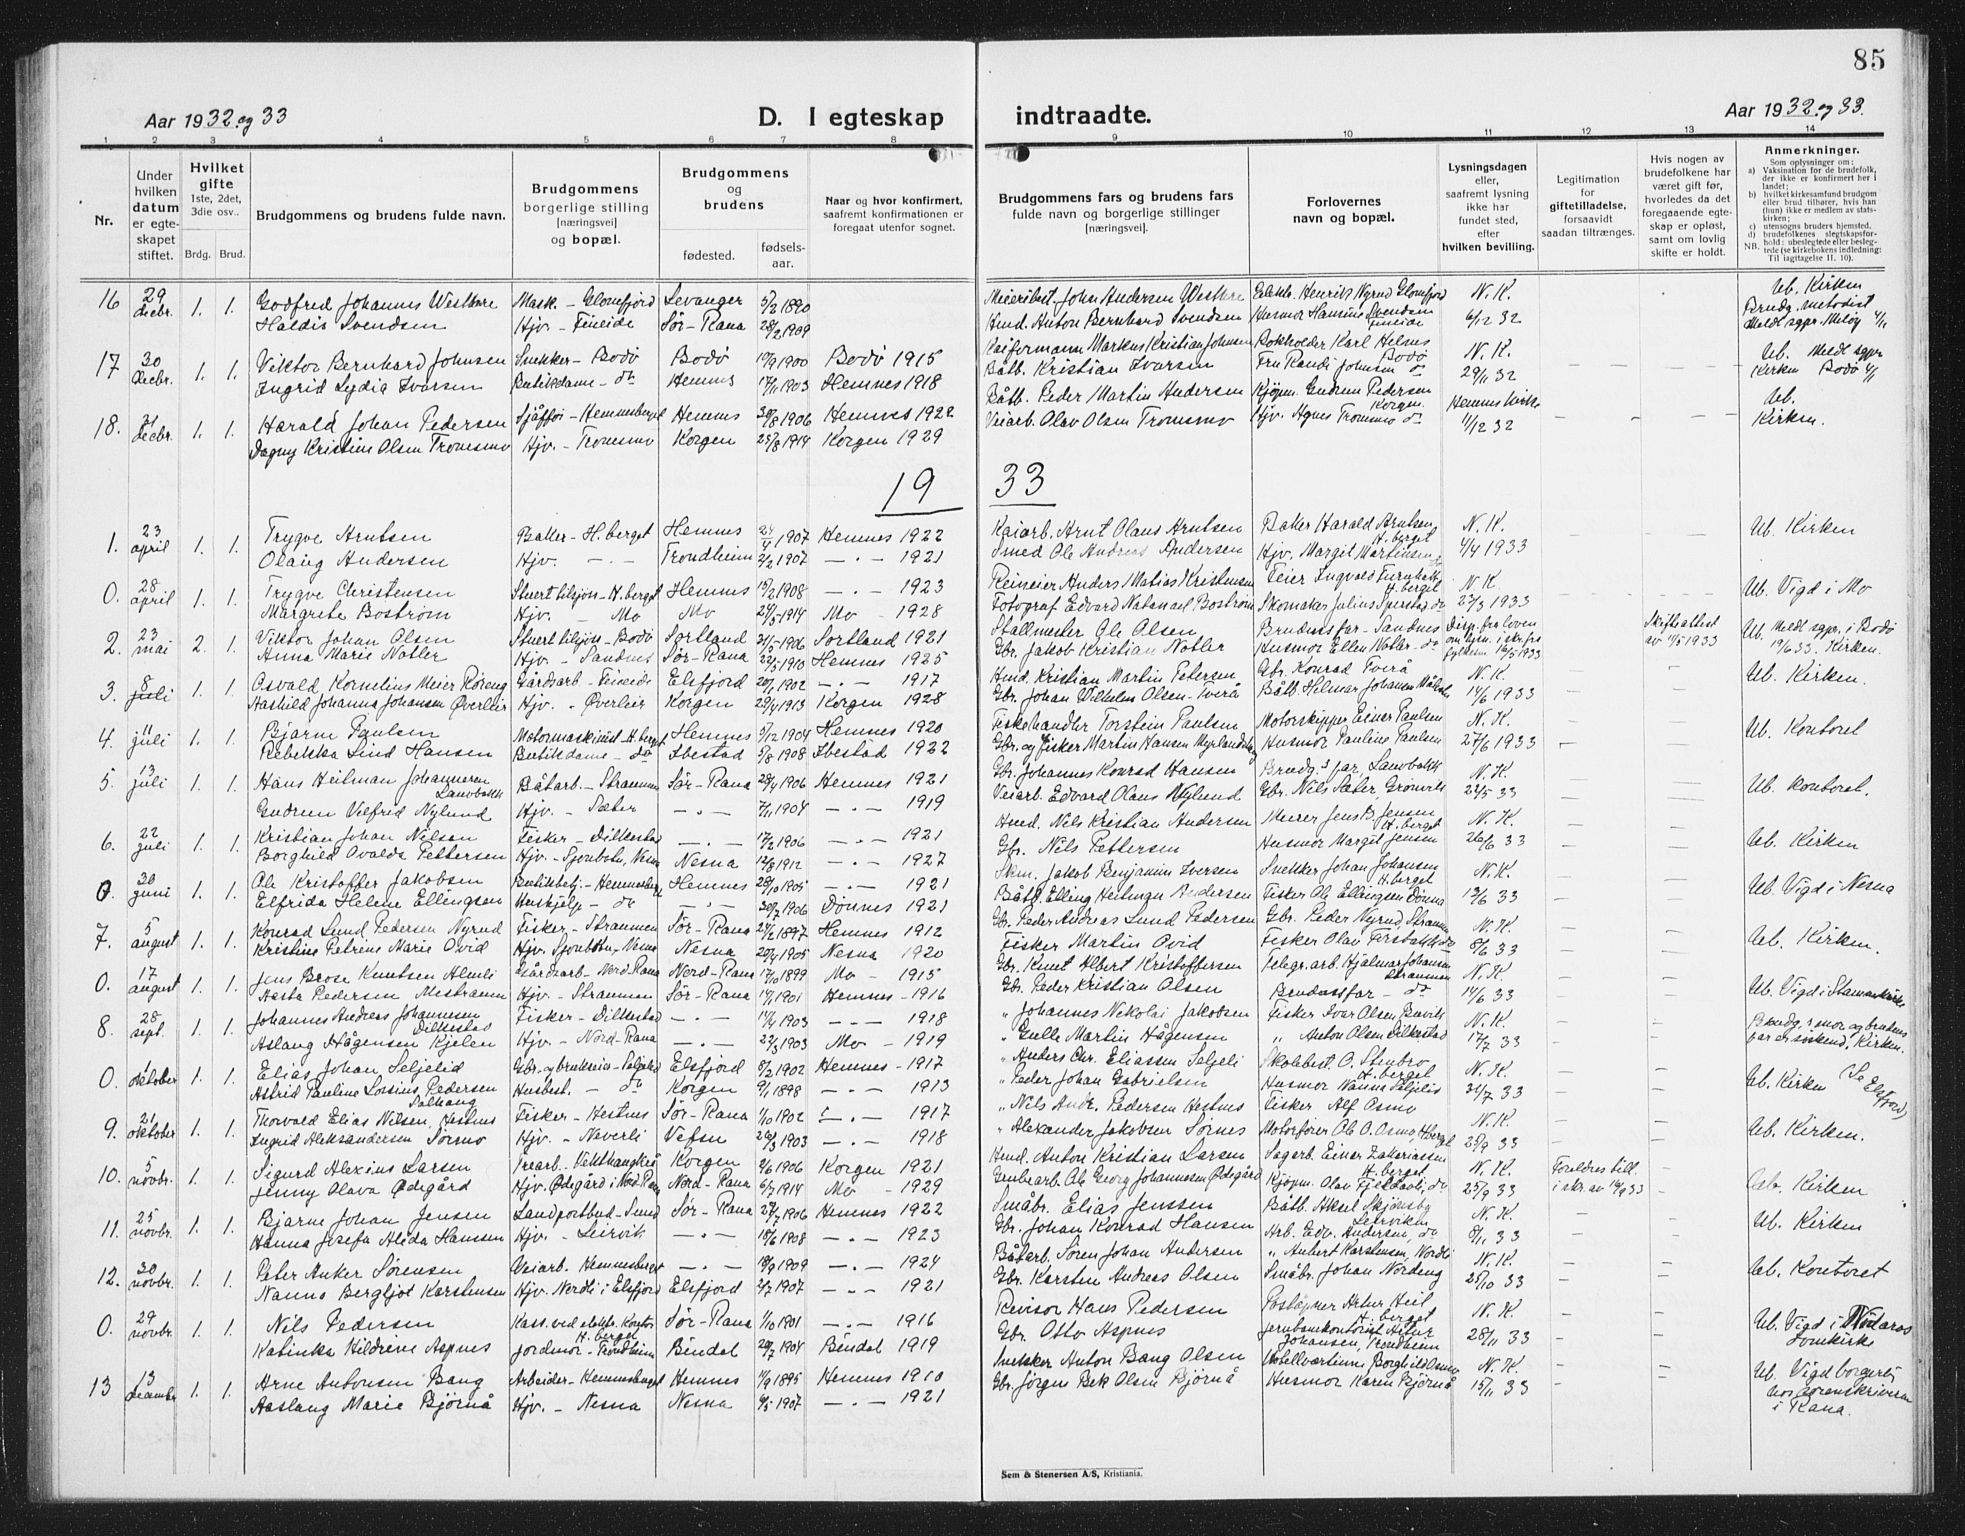 85
Aar 1932 og 33
D. I egteskap
indtraadte.
Aar 1932 og 33.
1 2 3 4 5 6 7 8 9 10 11 12 13 14
Nr.
Under hvilken datum er egteskapet stiftet.
Hvilket gifte 1ste, 2det, 3die osv..
Brdg. Brud.
Brudgommens og brudens fulde navn.
Brudgommens borgerlige stilling [næringsvei] og bopæl.
Brudgommens og brudens
fødested.
fødselsaar.
Naar og hvor konfirmert, saafremt konfirmationen er foregaat utenfor sognet.
Brudgommens fars og brudens fars fulde navn og borgerlige stillinger [næringsvei].
Forlovernes navn og bopæl.
Lysningsdagen eller, saafremt lysning ikke har fundet sted, efter hvilken bevilling.
Legitimation for giftetilladelse, forsaavidt saadan tiltrænges.
Hvis nogen av brudefolkene har været gift før, hvorledes da det foregaaende egteskap er opløst, samt om lovlig skifte er holdt.
Anmerkninger.
Som oplysninger om:
a) Vaksination for de brudefolk, der ikke er konfirmert her i landet;
b) hvilket kirkesamfund brudgom eller brud tilhører, hvis han (hun) ikke er medlem av statskirken;
c) utensogns bruders hjemsted.
d) brudefolkenes slegtskapsforhold: ubeslegtede eller beslegtede (se kirkebokens indledning: Til iagttagelse 11, 10).
NB.
16 29 decbr. 1. 1. Godfred Johannes Westbere Mask. - Glomfjord Levanger 5/2 1890 Meieribest. John Andersen Westbere Elektr. Henrik Nyrud Glomfjord N.K. Ub. Kirken
Haldis Svendsen Hjv. - Fineide Sør-Rana 28/2 1909 Hmd. Anton Bernhard Svendsen Husmor Hansine Svendsen Fineide 6/12 32 Brudg. metodist Meldt sgpr. Meløy 4/1
17 30 decbr. 1. 1. Viktor Bernhard Johnsen Snekker - Bodø Bodø 10/9 1900 Bodø 1915 Kaiformann Markus Kristian Johnsen Rokholder Karl Helms Bodø N.K. Ub. Meldt sgpr
Ingrid Lydia Ivarsen Butikdame - do Hemnes 17/11 1903 Hemnes 1918 Båtb. Kristian Ivarsen Fru Randi Johnsen do 29/11 32 Kirken Bodø 4/1
18. 31 decbr. 1. 1. Harald Johan Pedersen Sjåffør - Hemnesberget Hemnes 30/8 1906 Hemnes 1922 Båtb. Peder Martin Andersen Kjøpm. Gudrun Pedersen Korgen Hemnes kirke Ub.
Dagny Kristine Olsen Tronesmo Hjv. - Tronesmo Korgen 25/8 1914 Korgen 1929 Veiarb. Olav Olsen Tronesmo Hjv. Agnes Tronesmo do 11/12 32 Kirken.
19 33
1. 23 april 1. 1. Trygve Arntsen Baker - H.berget Hemnes 24/4 1907 Hemnes 1922 Kaiarb. Arnt Olaus Arntsen Baker Harald Arntsen H.berget N.K. Ub. Kirken
Olaug Andersen Hjv. - " - Trondheim 2/2 1907 - " - 1921 Smed Ole Andreas Andersen Hjv. Margit Martinsen 4/4 1933
0. 28 april 1. 1. Trygve Christensen Stuert tilsjøs - H.berget Hemnes 15/2 1908 - " - 1923 Reineier Anders Matias Kristensen Feier Ingvald H.berget N.K. Ub. Vigd i Mo
Margrete Boström Hjv. - Mo Mo 24/5 1914 Mo - 1928 Fotograf Edvard Natanael Boström Skomaker Julius do 23/3 1933
2. 23 mai 2. 1. Viktor Johan Olsen Stuert tilsjøs - Bodø Sortland 31/5 1906 Sortland 1921 Stallmester Ole Olsen Brudens far - Sandnes Disp. fra loven Skifteattest Ub. Meldt sgpr. i Bodø
Anna Marie Nobler Hjv. - Sandnes Sør-Rana 22/5 1910 Hemnes 1925 Gbr. Jakob Kristian Nobler Husmor Ellen Nobler - do om lysn. i skr. fra fylkesm 16/5 1933 av 11/5 1933 19/6 33. Kirken.
3. 8 juli 1. 1. Osvald Kornelius Meier Røreng Gårdsarb - Fineide Elsfjord 20/1 1902 - " - 1917 Hmd. Kristian Martin Petersen Gbr. Konrad Tverå N.K. Ub. Kirken.
Aashild Johanna Johansen Øverleir Hjv. - Øverleir Korgen 29/4 1913 Korgen 1928 Gbr. Johan Wilhelm Olsen - Tverå Båtb. Helmer Johansen 14/6 1933
4. 11 juli 1. 1. Bjarne Paulsen Motormaskinist - H.berget Hemnes 5/12 1904 Hemnes 1920 Fiskehandler Torstein Paulsen Motorskipper Einar Paulsen N.K. Ub. Kontoret
Rebekka Lind Hansen Butikdame - do Ibestad 5/8 1908 Ibestad 1922 Gbr. og fisker Martin Hansen Myrlandshaug Husmor Pauline Paulsen 27/6 1933
5. 13 juli 1. 1. Hans Heitman Johannesen Lanobakk Båtarb. - Straumen Sør-Rana 28/4 1906 Hemnes 1921 Gbr. Johannes Konrad Hansen Brudg's far Lanobakk N.K. Ub. kontoret.
Gudrun Vilfrid Nylund Hjv. - Sæter - " - 7/11 1904 - " - 1919 Veiarb. Edvard Olaus Nylund Gbr. Nils Sæter, Grønvik 22/5 33
6. 22 juli 1. 1. Kristian Johan Nilsen Fisker - Dilkestad - " - 17/2 1906 - " - 1921 Hmd. Nils Kristian Andersen Murer Jens B. Jensen H.berget N.K. Ub. Kirken
Borghild Ovalda Pettersen Hjv. - Sjonbotn, Nesna Nesna 12/8 1912 - " - 1927 Gbr. Nils Pettersen Husmor Margit Jensen 26/6 33
0 30 juni 1. 1. Ole Kristoffer Jakobsen Butikbetj. - Hemnesberget Hemnes 28/10 1905 - " - 1921 Skm. Jakob Benjamin Iversen Snekker Johan Johansen H.berget N.K. Ub. Vigd i Nesna
Elfrida Helene Ellingsen Hushjelp - do - " - 30/7 1906 Dønnes 1921 Båtb. Elling Heitman Andersen Fisker Ole Ellingsen Dønna 13/6 33
7. 5 august 1. 1. Konrad Lund Pedersen Nyrud Fisker - Straumen Sør-Rana 24/2 1897 Hemnes 1912 Gbr. Peder Andreas Lund Pedersen Gbr. Peder Nyrud, Straumen N.K. Ub. Kirken.
Kristine Petrine Marie Ovid Hjv. Sjonbotn, Nesna Nesna 20/4 1905 Nesna 1920 Fisker Martin Ovid Fisker Olav Forsbakk do 8/6 33
0. 17 august 1. 1. Jens Brose Knutsen Almli Gårdsarb - Nord-Rana Nord-Rana 17/10 1899 Mo - 1915 Gbr. Knut Albert Kristoffersen Telegr.arb. Hjalmar Johansen Straumen N.K. Ub. Vigd i Stamneskirke
Aasta Pedersen Mestraumen Hjv. - Straumen Sør-Rana 14/1 1901 Hemnes - 1916 Gbr. Peder Kristian Olsen Brudens far - do 14/6 33
8. 28 sept. 1. 1. Johannes Andreas Johannesen Dilkestad Fisker - Dilkestad - " - 14/4 1903 - " - 1918 " Johannes Nikolai Jakobsen Fisker Ivar Olsen N.K. Brudg.s mor og brudens
Aslaug Hågensen Kjelen Hjv. - Nord-Rana - " - 22/3 1903 Mo - 1919 " Gulle Martin Hågensen " Anton Olsen Dilkestad 17/7 33 far er søskend, Kirken.
0. 1 oktober 1. 1. Elias Johan Seljelid Gbr. og - Seljelid Elsfjord 8/2 1902 Hemnes - 1917 " Anders Chr. Eliassen Seljeli Skolebest. O. Stenbro H.berget N.K. Ub. Kirken (Se Elsfjord)
Astrid Pauline Lossius Pedersen Solhaug Husbest. - do Korgen 9/1 1898 - " - 1913 " Peder Johan Gabrielsen Husmor Nanna Seljelid 24/7 33
9. 21 oktober 1. 1. Thorvald Elias Nilsen, Hestnes Fisker - Hestnes Sør-Rana 1/10 1902 - " - 1917 " Nils Andr. Pedersen Hestnes Fisker Alf Osmo N.K. Ub. Kirken.
Ingrid Aleksandersen Sørmo Hjv. - Neverli Vefsn 29/3 1903 - " - 1918 " Alexander Jakobsen Sørnes Motorfører Ole O. Osmo, H.berget 25/9 33
10. 5 novbr. 1. 1. Sigurd Alexius Larsen Trearb. - Korgen 2/6 1906 Korgen 1921 Hmd. Anton Kristian Larsen Sagarb. Einar Zakariassen H.berget N.K. Foreldres till. Ub. Kirken
Jenny Olava Ødegård Hjv. Ødegård i Nord-Rana Nord-Rana 6/7 1914 Mo - 1929 Grubearb. Ole Georg Johannesen Ødegård Kjøpm. Olav Fjeldavli, do 25/9 33 i skr. av 14/9 33
11. 25 novbr. 1. 1. Bjarne Johan Jensen Landpostbud - Sund Sør-Rana 27/7 1906 Hemnes 1922 Småbr. Elias Jenssen Båtb. Aksel Skjønsby Leirviken N.K. Ub. Kirken
Hanna Josefa Alida Hanssen Hjv. - Leirvik - " - 18/6 1908 - " - 1923 Gbr. Johan Konrad Hansen Arb. Edv. Andersen, do 8/11 33
12. 30 novbr. 1. 1. Peter Anker Sørensen Veiarb. Hemnesberget - " - 19/9 1909 - " - 1924 Båtarb. Søren Johan Andersen " Anbert Karstensen, Nordli N.K. Ub. Kontoret
Nanna Bergljot Karstensen Hjv. Nordli i Elsfjord Elsfjord 2/7 1907 - " - 1921 Gbr. Karsten Andreas Olsen Småbr. Johan Nordeng 25/10 33
0. 29 novbr. 1. 1. Nils Pedersen Kass. ved elektr. Kontor H.berget Sør-Rana 1/10 1901 - " - 1916 Revisor Hans Pedersen Poståpner Artur Heil H.berget N.K. Ub. Vigd i Nidaros
Katinka Hildrine Aspnes Jordmor - Trondheim Bindal 20/7 1904 Bindal 1919 Gbr. Otto Aspnes Jernbanekontorist Artur Johansen, Trondheim 28/11 33 Domkirke
13 13 decembr 1. 1. Arne Antonsen Bang Arbeider - Hemnesberget Hemnes 1/9 1895 Hemnes 1910 Snekker Anton Bang Olsen Hotellvertinne Borghild Olsen N.K. Ub. Vigd borgerlig
Aaslaug Marie Bjørnå Hjv. - Nesna Nesna 9/5 1907 - " - 1921 Gbr. Jørgen Bek Olsen Bjørnå Husmor Karen Bjørnå 15/11 33 hos sorenskriveren i Rana.
Sem & Stenersen A/S, Kristiania.